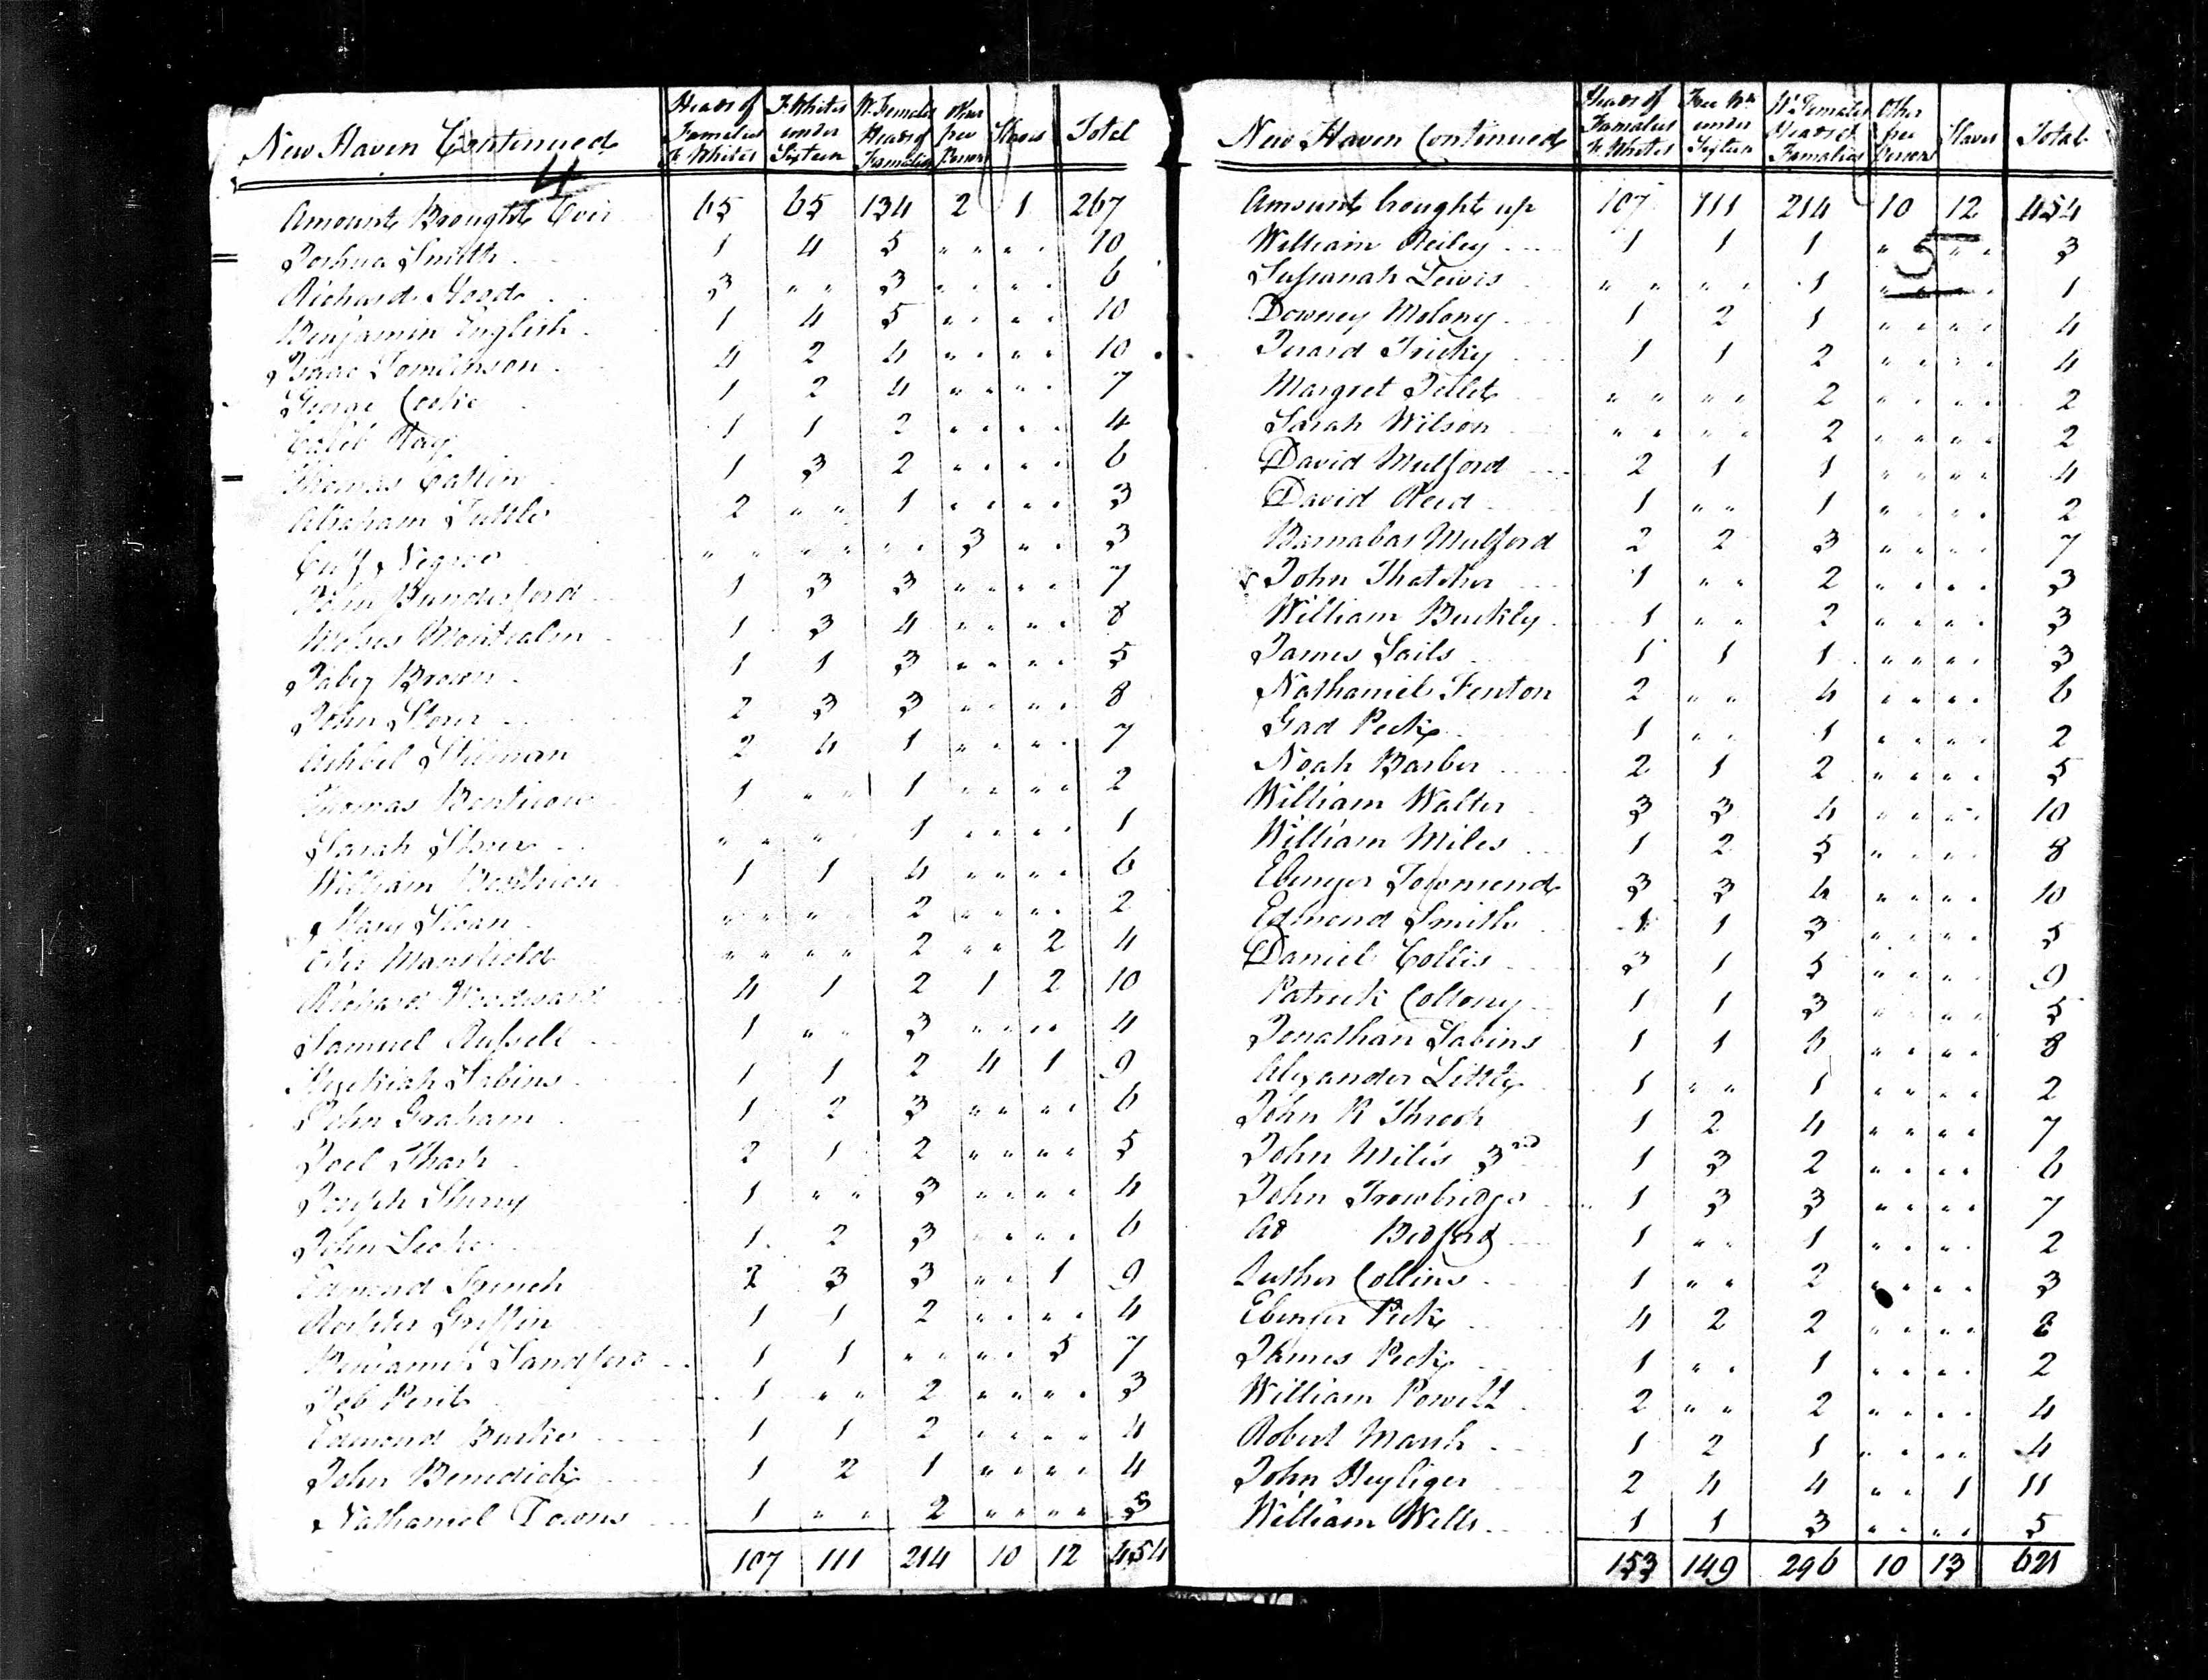 New Haven Continued | Heads of Famalies F. Whites | F. Whites under Sixteen | W. Females Heads of Famalies | Other free Persons | Slaves | Total
4
Amount Brought Over 65 65 134 2 1 267
Joshua Smith 1 4 5 " " " " 10
Richard Hood 3 " " 3 " " " " 6
Benjamin English 1 4 5 " " " " 10
Isaac Tomlinson 4 2 4 " " " " 10
George Cooke 1 2 4 " " " " 7
Caleb Hay 1 1 2 " " " " 4
Thomas Catlin 1 3 2 " " " " 6
Abraham Tuttle 2 " " 1 " " " " 3
Cuff Negroe " " " " " " 3 " " 3
John Bunderford 1 3 3 " " " " 7
Moses 1 3 4 " " " " 8
Jabez Brown 1 1 3 " " " " 5
John Storer 2 3 3 " " " " 8
Ashbel Stilman 2 4 1 " " " " 7
Thomas 1 " " 1 " " " " 2
Sarah " " " " 1 " " " " 1
William 1 1 4 " " " " 6
Mary Sloan " " " " 2 " " " " 2
Mansfield " " " " 2 " " 2 4
Richard Woodward 4 1 2 1 2 10
Samuel Russell 1 " " 3 " " " " 4
Hezekiah Sabins 1 1 2 4 1 9
John Graham 1 2 3 " " " " 6
Joel Tharp 2 1 2 " " " " 5
Joseph 1 " " 3 " " " " 4
John Leeke 1 2 3 " " " " 6
Edmond French 2 3 3 " " 1 9
Griffin 1 1 2 " " " " 4
Benjamin Sandford 1 1 " " " " 5 7
Job Perit 1 " " 2 " " " " 3
Edmond Burke 1 1 2 " " " " 4
John Benedick 1 2 1 " " " " 4
Nathaniel Towns 1 " " 2 " " " " 3
107 111 214 10 12 454
New Haven Continued | Heads of Famalies F. Whites | Free Ws under Sixteen | W. Females Heads of Famalies | Other free Persons | Slaves | Total
Amount brought up 107 111 214 10 12 454
William Reiley 1 1 1 " " " " 3
5
Sussanah Lewis " " " " 1 " " " " 1
Downey Molony 1 2 1 " " " " 4
Jerard Tricky 1 1 2 " " " " 4
Margret Tellet " " " " 2 " " " " 2
Sarah Wilson " " " " 2 " " " " 2
David Mulford 2 1 1 " " " " 4
David Reed 1 " " 1 " " " " 2
Barnabas Mulford 2 2 3 " " " " 7
John Thatcher 1 " " 2 " " " " 3
William Buckly 1 " " 2 " " " " 3
James Sails 1 1 1 " " " " 3
Nathaniel Fenton 2 " " 4 " " " " 6
Gad Peck 1 " " 1 " " " " 2
Noah Barber 2 1 2 " " " " 5
William Walter 3 3 4 " " " " 10
William Miles 1 2 5 " " " " 8
Ebenezer Townsend 3 3 4 " " " " 10
Edmond Smith 1 1 3 " " " " 5
Daniel Collis 3 1 5 " " " " 9
Patrick Collony 1 1 3 " " " " 5
Jonathan Sabins 1 1 6 " " " " 8
Alexander Little 1 " " 1 " " " " 2
John R Throop 1 2 4 " " " " 7
John Miles 3rd 1 3 2 " " " " 6
John Trowbridge 1 3 3 " " " " 7
Bedford 1 " " 1 " " " " 2
Luther Collins 1 " " 2 " " " " 3
Ebenezer Peck 4 2 2 " " " " 8
James Peck 1 " " 1 " " " " 2
William Powell 2 " " 2 " " " " 4
Robert Marsh 1 2 1 " " " " 4
John Heyliger 2 4 4 " " 1 11
William Wells 1 1 3 " " " " 5
153 149 296 10 13 621